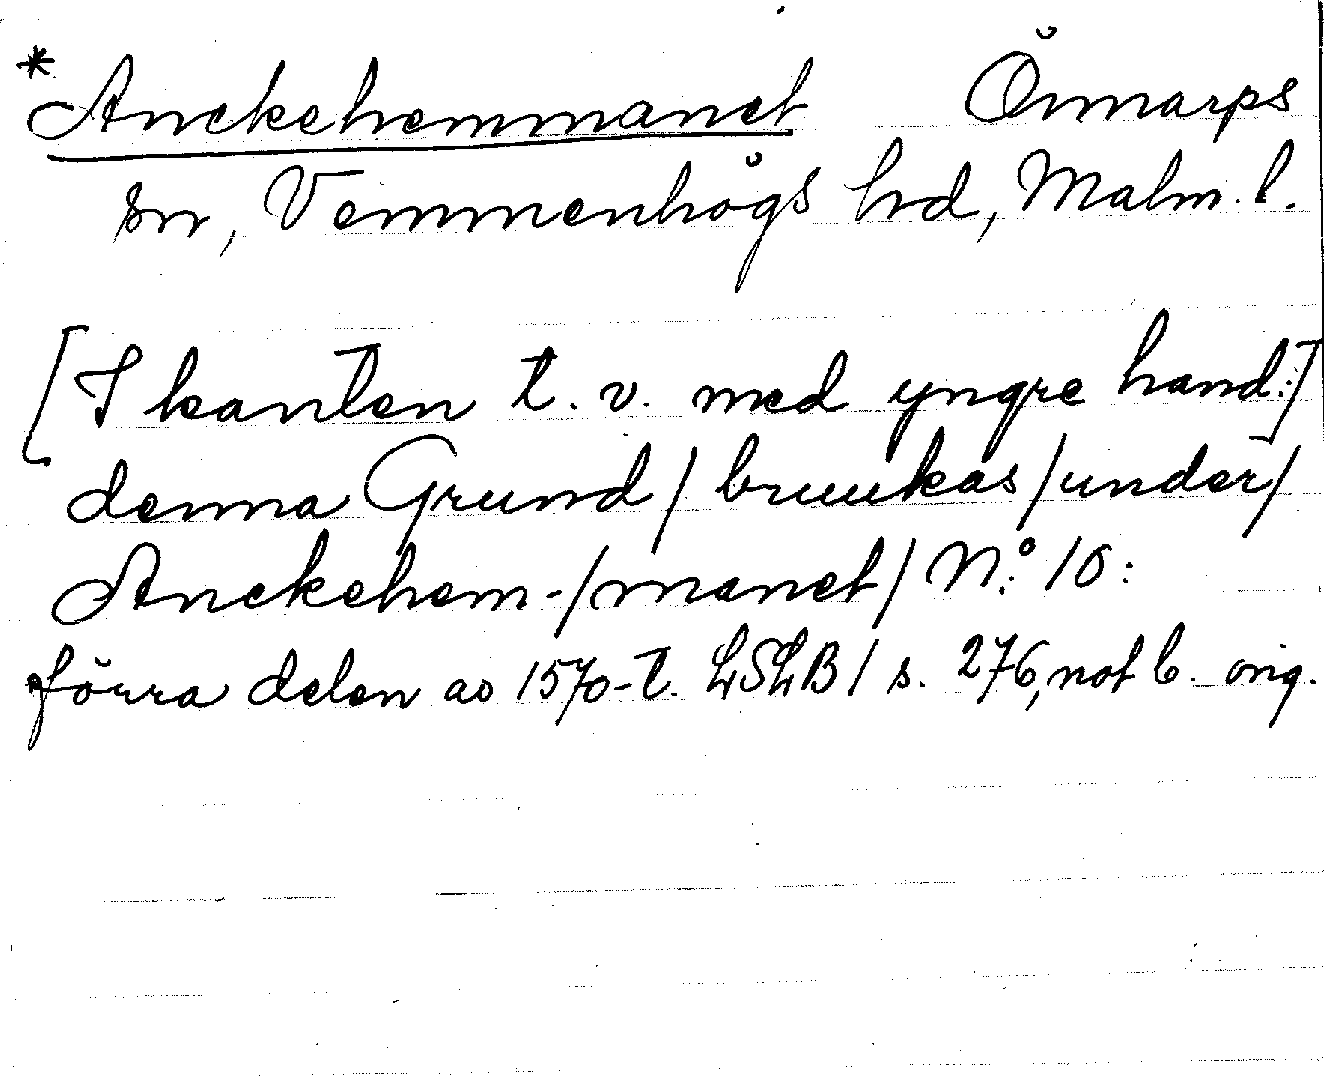 *Anckehemmanet Önnarps
sn, Vemmenhögs hd, Malm. l.
[I kanten t. v. med yngre hand:]
denna Grund / bruukas / under /
Anckehem-/manet / N:o 10:
förra delen av 1570-t. LSLB I s. 276, not b. orig.